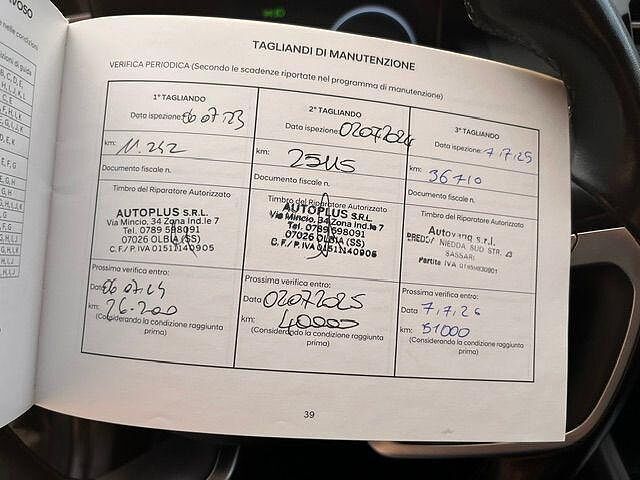 TAGLIANDI DI MANUTENZIONE
VERIFICA PERIODICA (Secondo le scadenze riportate nel programma di manutenzione)
1° TAGLIANDO
Data ispezione: 06 07 23
km: 11.242
Documento fiscale n.
Timbro del Riparatore Autorizzato
AUTOPLUS S.R.L.
Via Mincio, 34 Zona Ind.le 7
Tel. 0789 598091
07026 OLBIA (SS)
C.F./P. IVA 01511140905
Prossima verifica entro:
Data 06 07 24
km: 26.200
(Considerando la condizione raggiunta
prima)
2° TAGLIANDO
Data ispezione: 02072024
km:
Documento fiscale n.
Timbro del Riparatore Autorizzato
AUTOPLUS S.R.L.
Via Mincio, 34 Zona Ind.le 7
Tel. 0789 598091
07026 OLBIA (SS)
C.F./P. IVA 01511140905
Prossima verifica entro:
Data 02072025
km: 40000
(Considerando la condizione raggiunta
prima)
3° TAGLIANDO
Data ispezione: 7,7,25
km: 36710
Documento fiscale n.
Timbro del Riparatore Autorizzato
s.r.l.
PREDDA NIEDDA SUD STR.
SASSARI
Partita IVA
Prossima verifica entro:
Data 7,7,26
km: 51000
(Considerando la condizione raggiunta
prima)
39